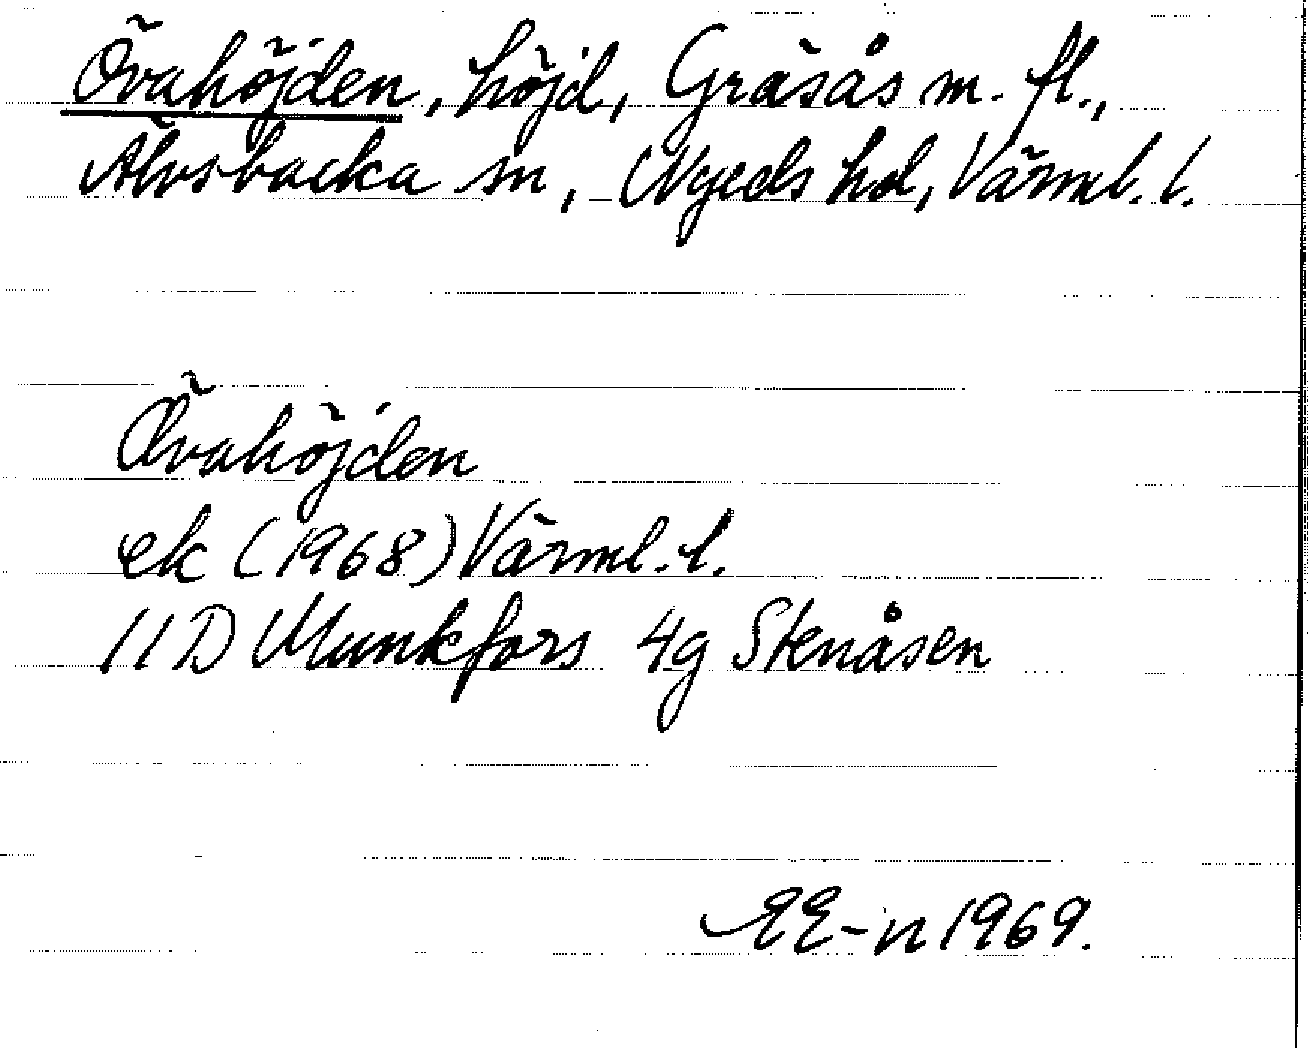 Övahöjden, höjd, Gräsås m. fl.,
Älvsbacka sn, Nyeds hd, Värml. l.
Övahöjden
ek (1968) Värml. l.
11D Munkfors 4g Stenåsen
EE-n 1969.